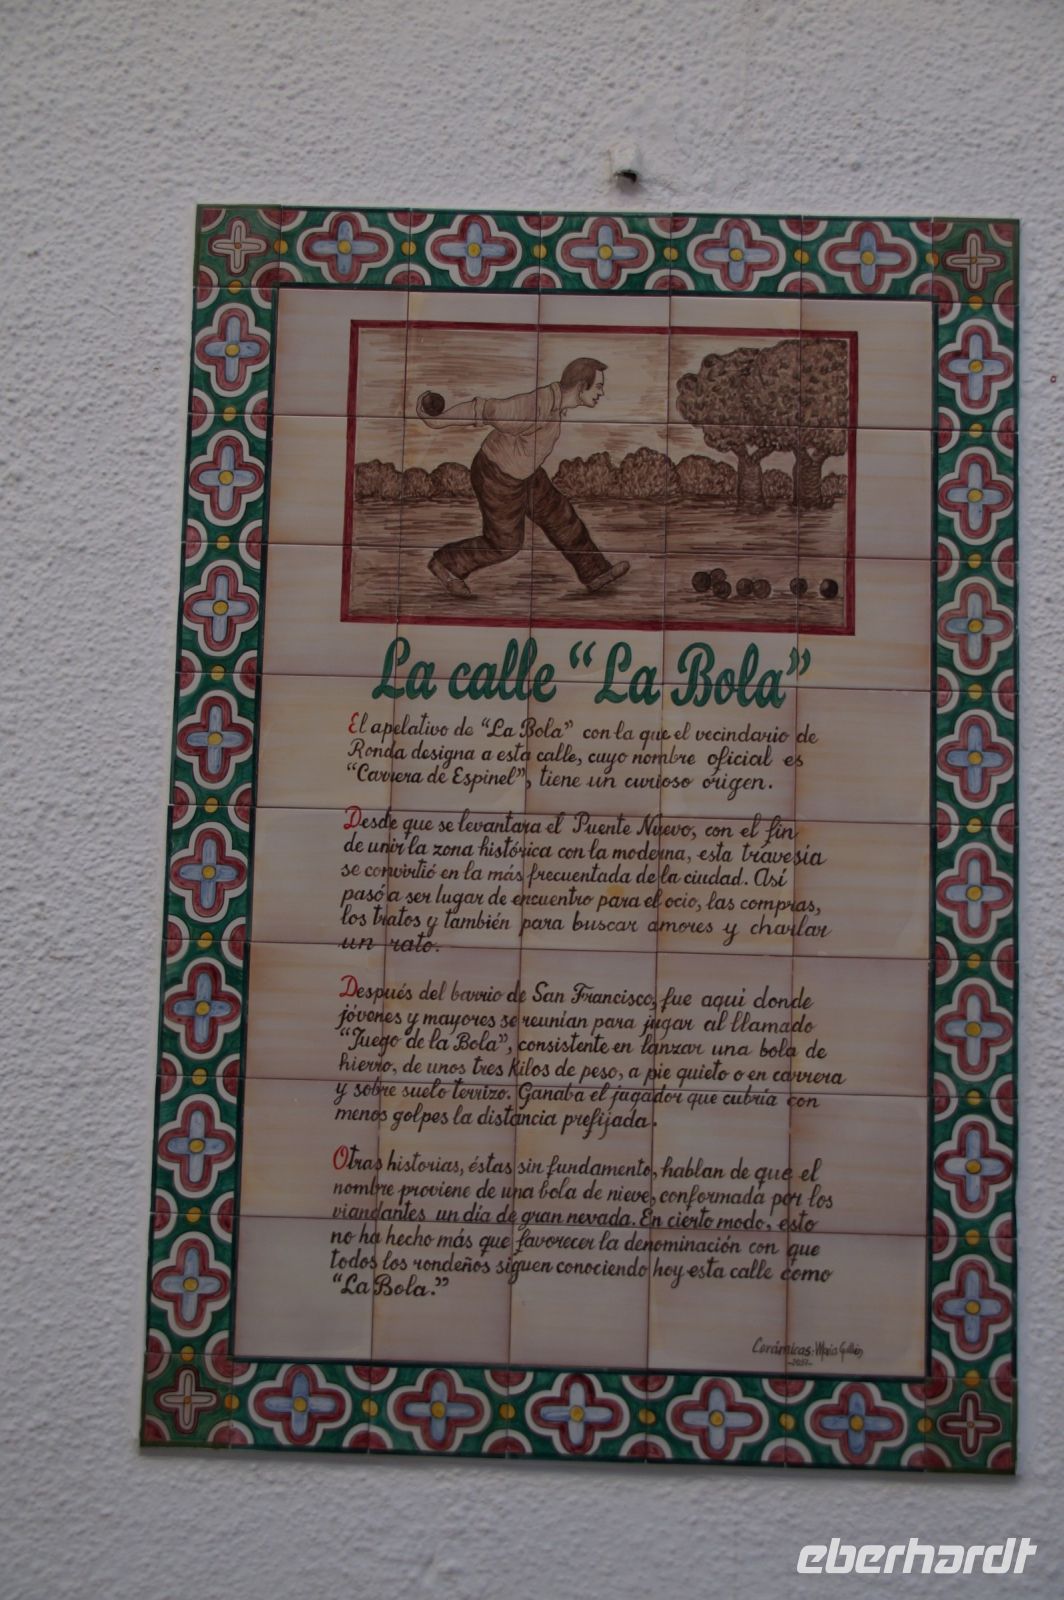 La calle “La Bola”
El apelativo de “La Bola” con la que el vecindario de
Ronda designa a esta calle, cuyo nombre oficial es
“Carrera de Espinel”, tiene un curioso origen.
Desde que se levantara el Puente Nuevo, con el fin
de unir la zona histórica con la moderna, esta travesía
se convirtió en la más frecuentada de la ciudad. Así
pasó a ser lugar de encuentro para el ocio, las compras,
los tratos y también para buscar amores y charlar
un rato.
Después del barrio de San Francisco, fue aqui donde
jóvenes y mayores se reunían para jugar al llamado
“Juego de la Bola”, consistente en lanzar una bola de
hierro, de unos tres kilos de peso, a pie quieto o en carrera
y sobre suelo terrizo. Ganaba el jugador que cubría con
menos golpes la distancia prefijada.
Otras historias, éstas sin fundamento, hablan de que el
nombre proviene de una bola de nieve, conformada por los
viandantes un día de gran nevada. En cierto modo, esto
no ha hecho más que favorecer la denominación con que
todos los rondeños siguen conociendo hoy esta calle como
“La Bola.”
Cerámicas: María
eberhardt